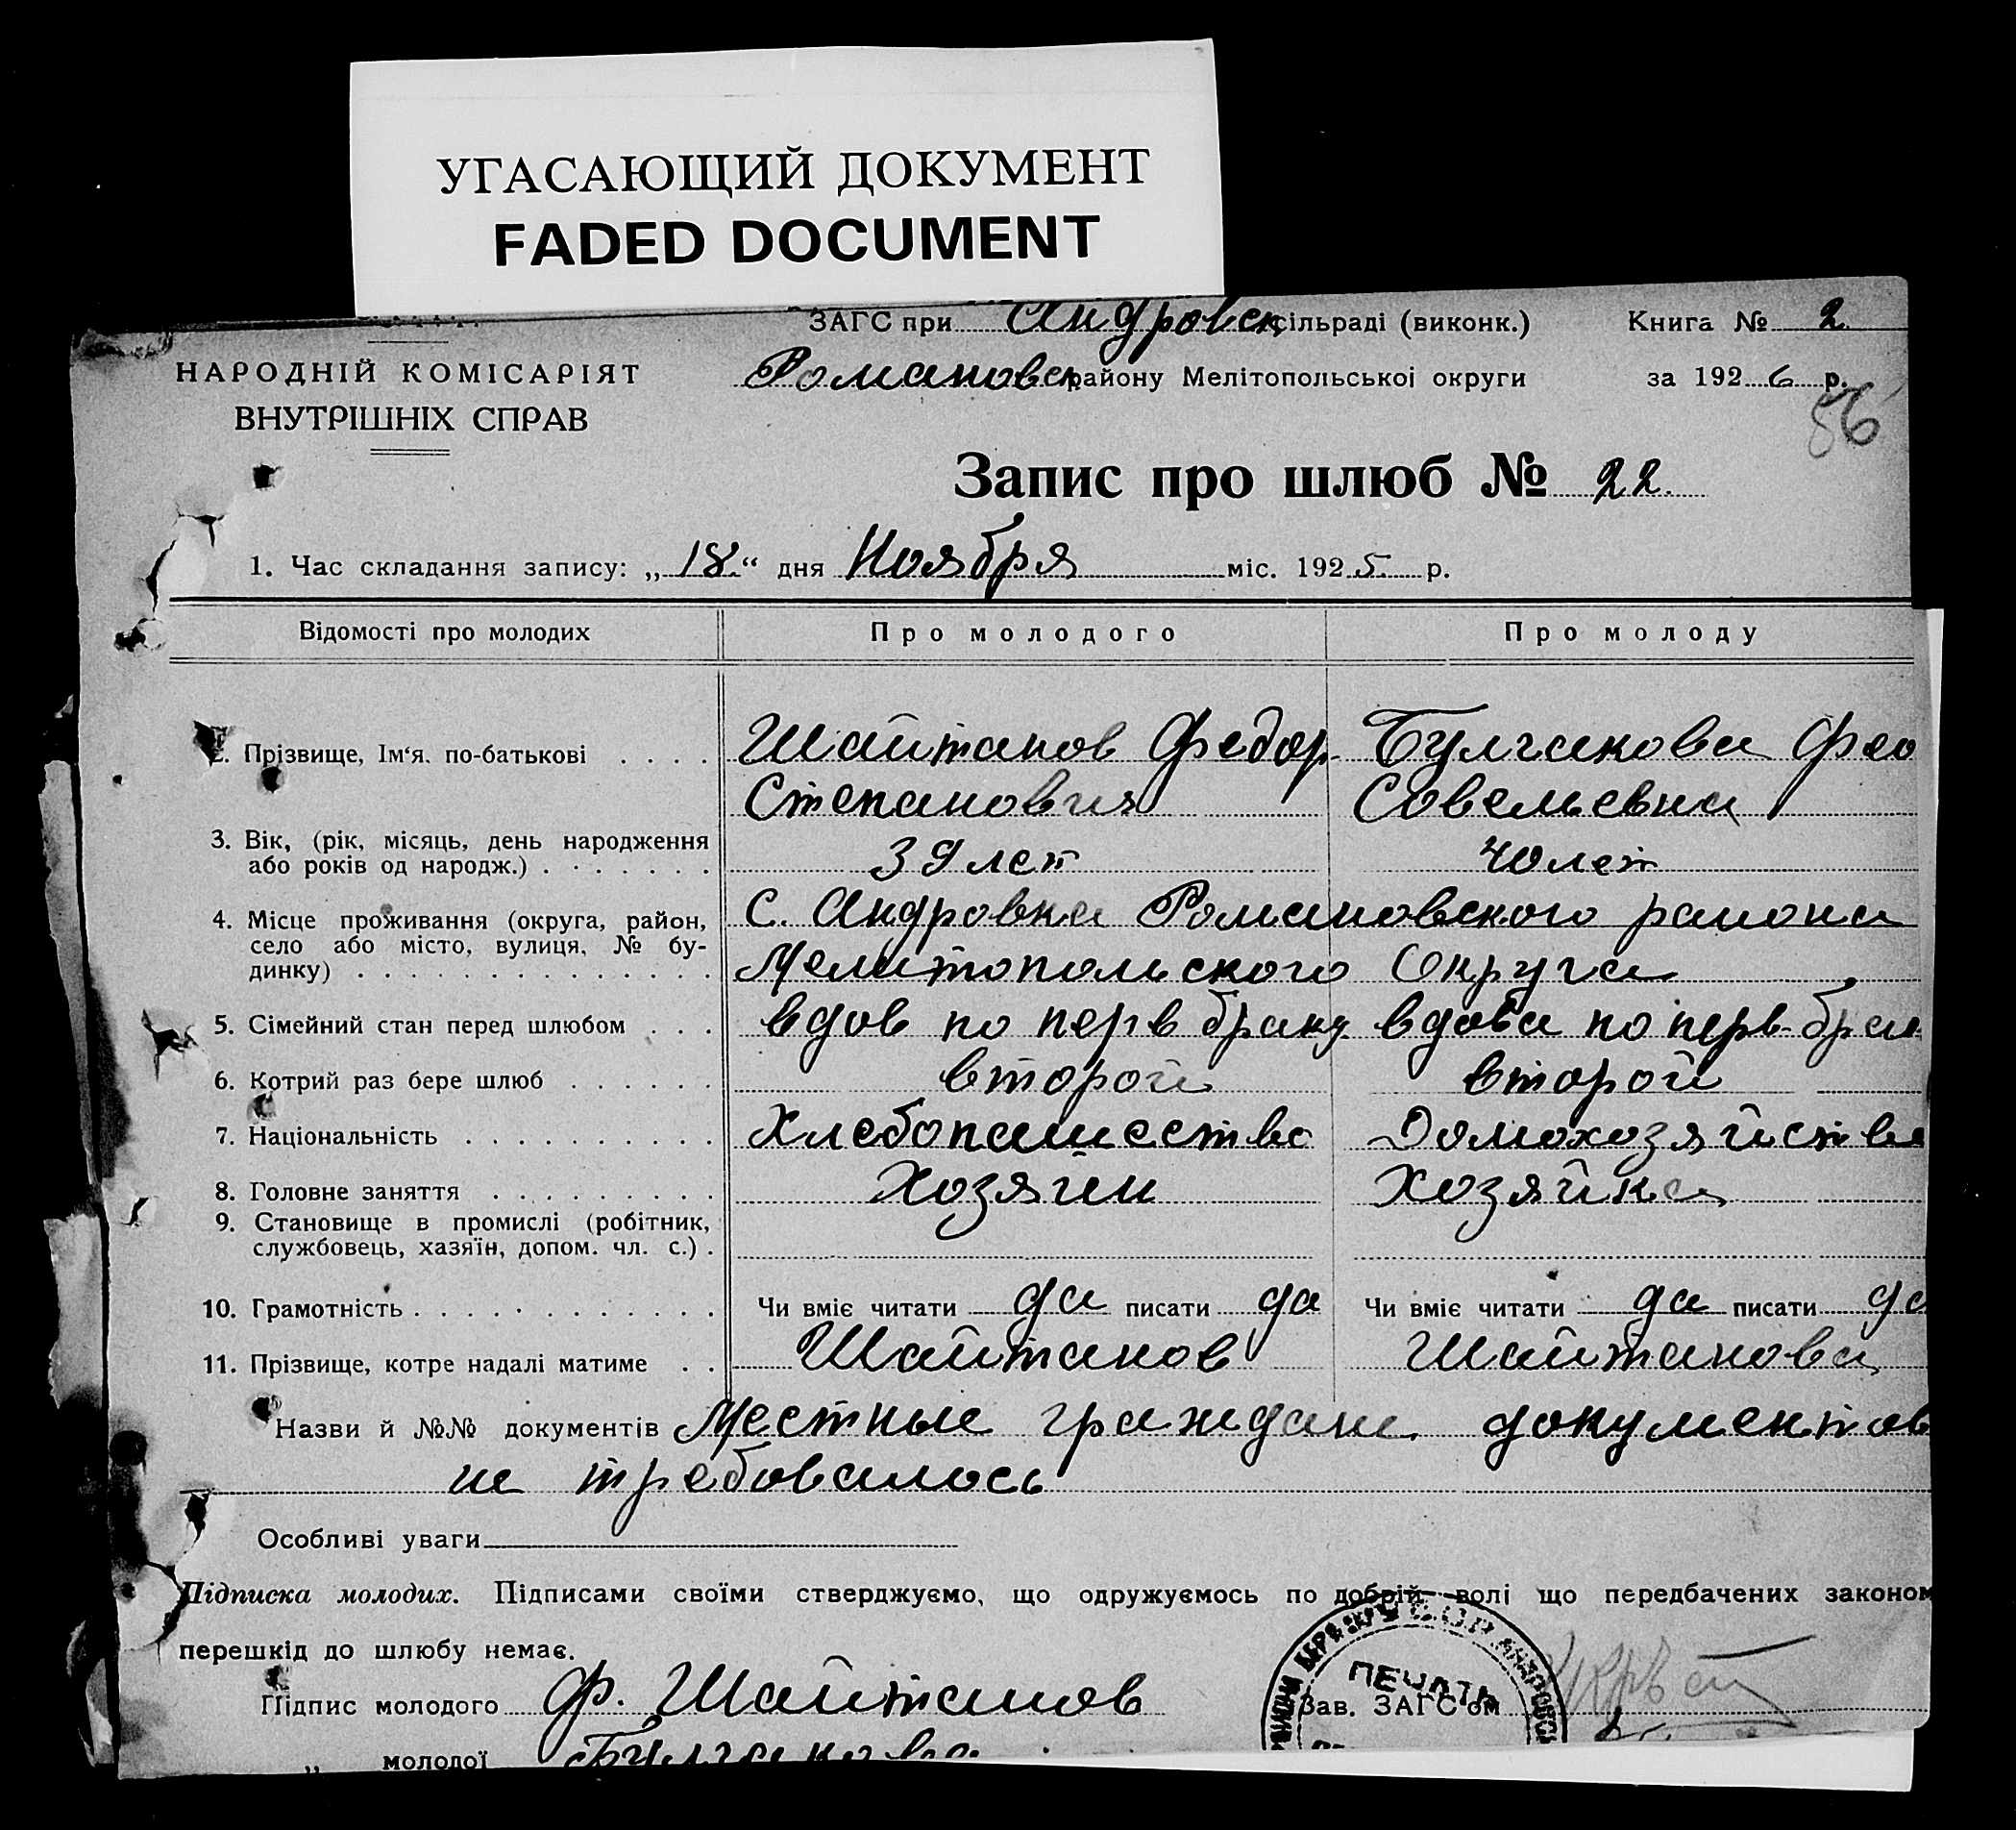 УГАСАЮЩИЙ ДОКУМЕНТ
FADED DOCUMENT
ЗАГС при Андровск сільраді (виконк.) Книга № 2
НАРОДНІЙ КОМІСАРІЯТ
ВНУТРІШНІХ СПРАВ
Романовск району Мелітопольської округи за 1926 р.
56
Запис про шлюб № 22.
1. Час складання запису: „18.“ дня Ноября міс. 1925. р.
Відомості про молодих Про молодого Про молоду
2. Прізвище, Ім‘я. по-батькові Шайтанов Федор Булгакова Фео
Степанович Совельевна
3. Вік, (рік, місяць, день народження
або років од народж.) 39 лет 40 лет
4. Місце проживання (округа, район,
село або місто, вулиця, № бу-
динку)
С. Андровка Романовского района
Мелитопольского Округа
5. Сімейний стан перед шлюбом вдов по перв браку вдова по перв. брак
6. Котрий раз бере шлюб второй второй
7. Національність Хлебопашество Домохозяйство
8. Головне заняття Хозяин Хозяйка
9. Становище в промислі (робітник,
службовець, хазяїн, допом. чл. с.)
10. Грамотність Чи вміє читати да писати да Чи вміє читати да писати да
11. Прізвище, котре надалі матиме Шайтанов Шайтанова
Назви й №№ документів Местные граждане. документов
не требовалось
Особливі уваги
Підписка молодих. Підписами своїми стверджуємо, що одружуємось по добрій волі що передбачених законом
перешкід до шлюбу немає.
Підпис молодого Ф. Шайтанов
ПЕЧАТЬ
Зав. ЗАГС'ом
„ молодої Булгакова